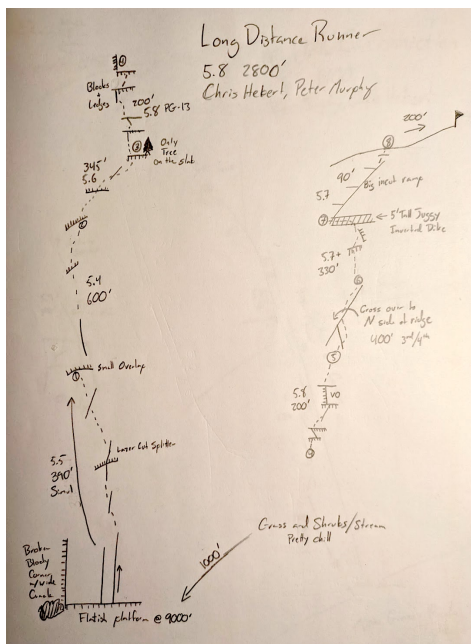 Long Distance Runner
5.8 2800'
Chris Hebert, Peter Murphy
4
Blocks
+
Ledges
200'
5.8 PG-13
3
Only
Tree
On the slab
345'
5.6
2
5.4
600'
1
Small Overlap
Lazer Cut Splitter
5.5
390'
Simul
Broken
Blocky
Corner
w/wide
Crack
Flatish platform @ 9000'
200'
8
90'
5.7
Big incut ramp
7
5' Tall Juggy
Inverted Dike
5.7+
330'
6
Cross over to
N side of ridge
400' 3rd/4th
5
5.8
200'
VO
4
Grass and Shrubs/Stream
Pretty chill
1000'